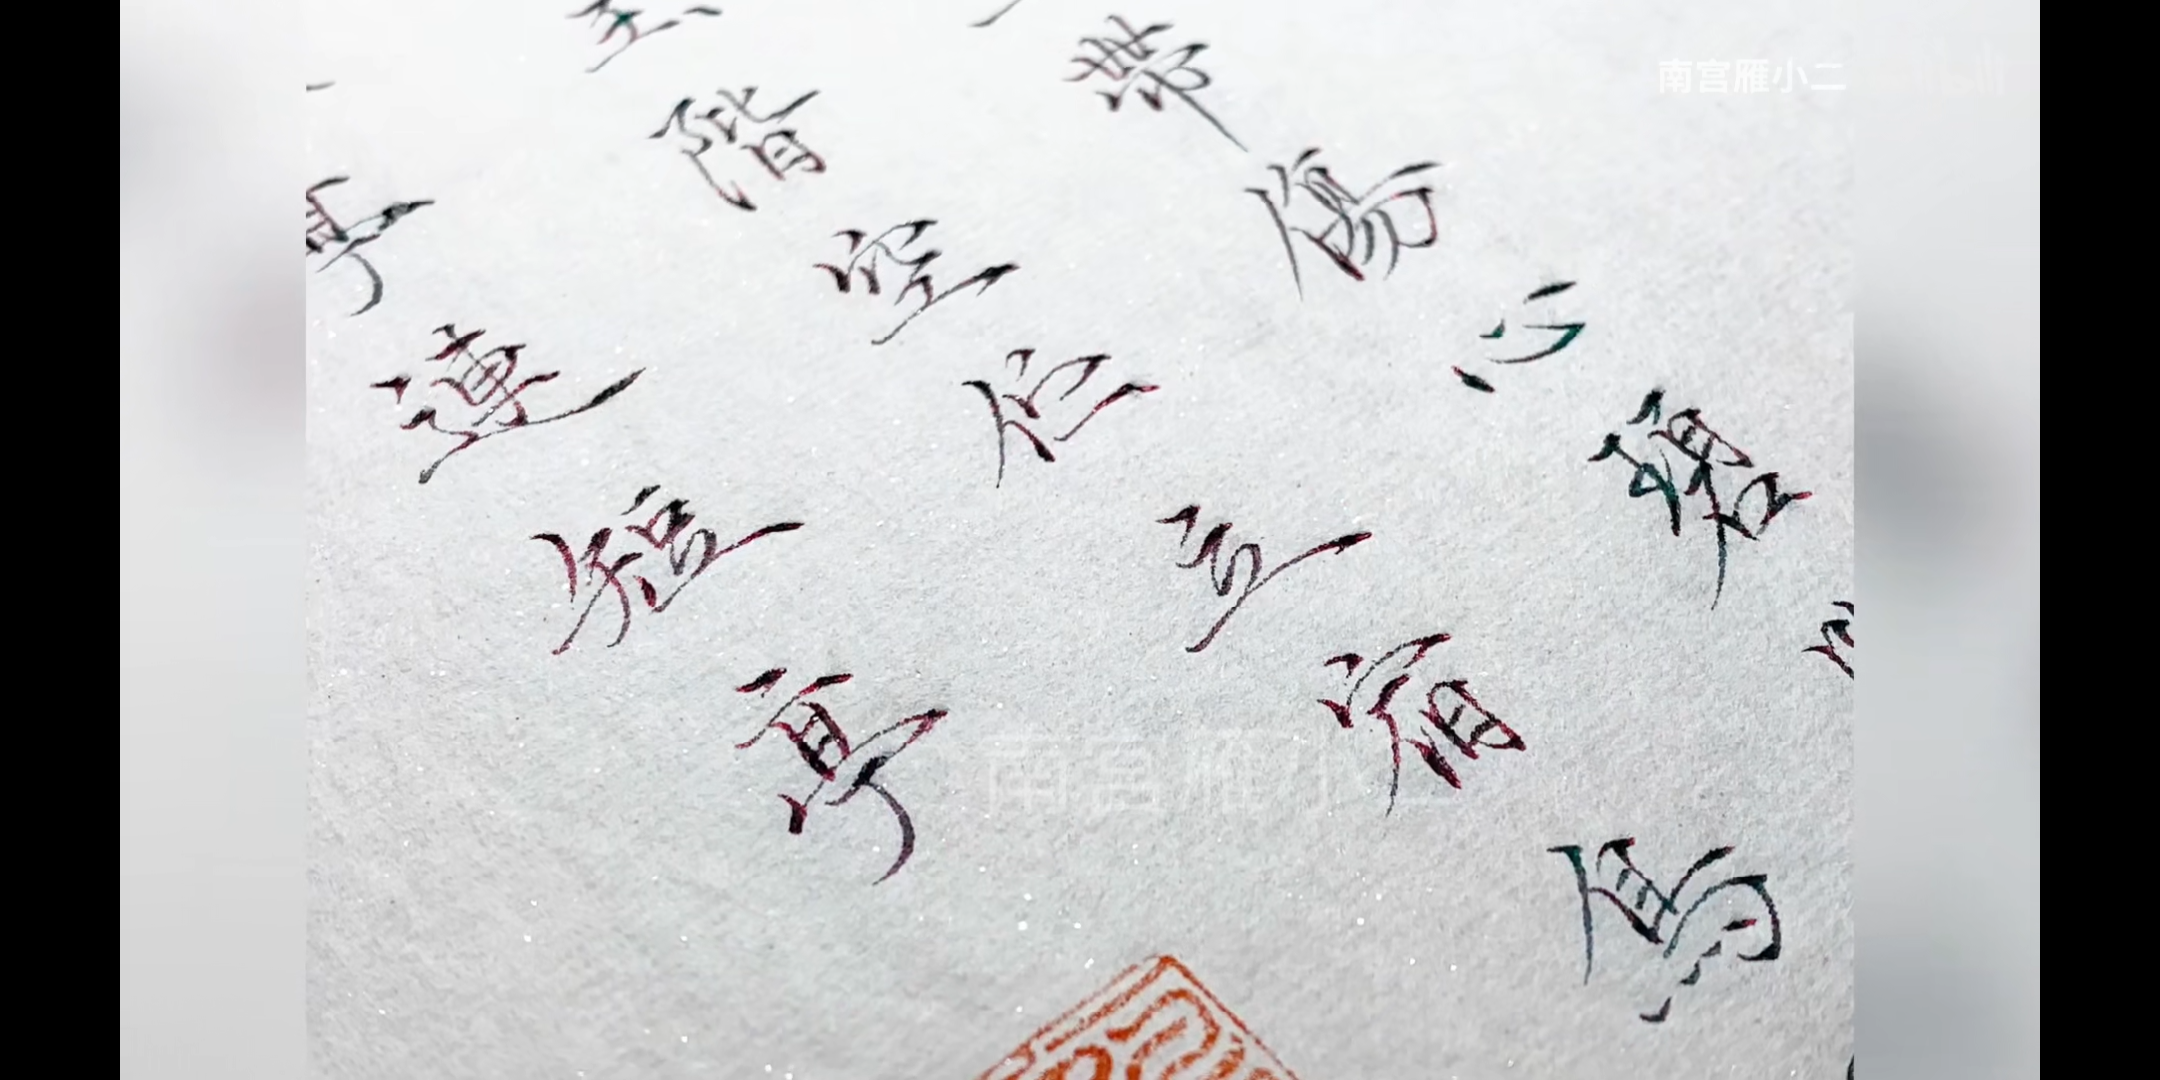 南宫雁小二
帶傷心碧
玉階空佇立宿鳥
亭連短亭
南宫雁小二